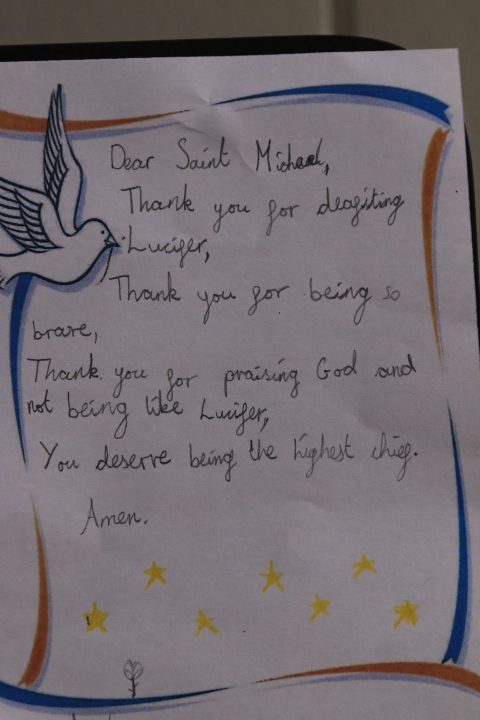 Dear Saint Michael,
Thank you for deagiting
Lucifer,
Thank you for being so
brave,
Thank you for praising God and
not being like Lucifer,
You deserve being the highest chief.
Amen.